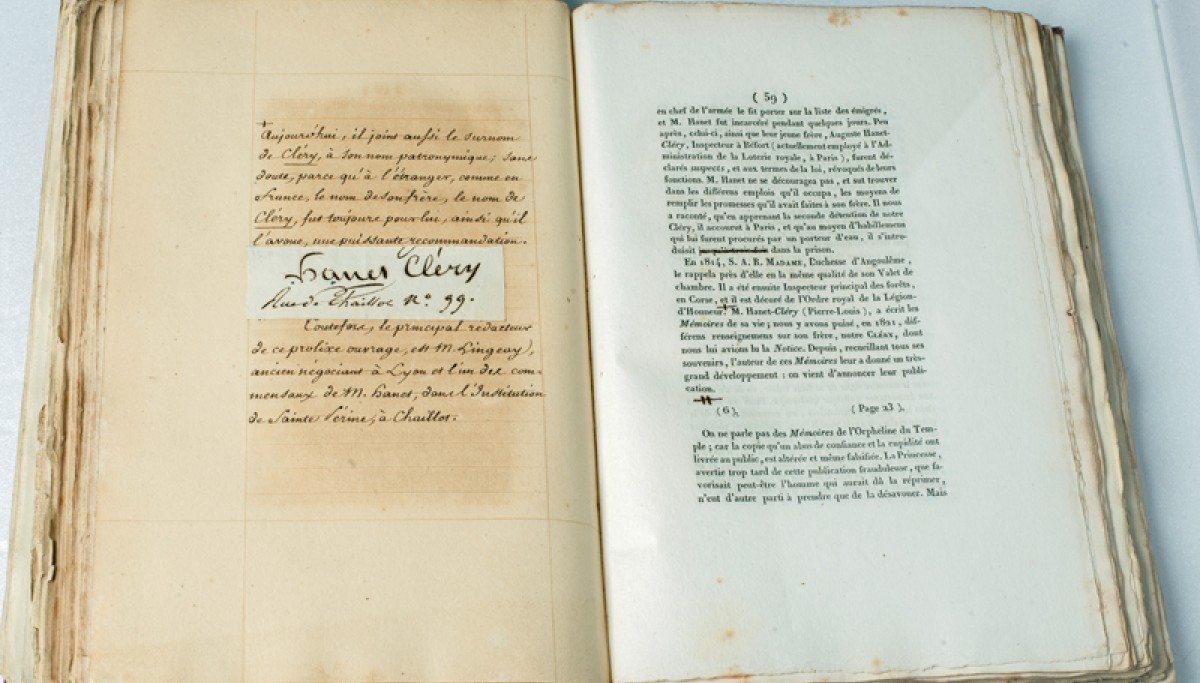 Aujourd'hui, il joint aussi le surnom
de Cléry, à son nom patronymique; sans
doute, parce qu'à l'étranger, comme en
france, le nom de son frère, le nom de
Cléry, fut toujours pour lui, ainsi qu'il
l'avoue, une puissante recommandation.
hanet Cléry
Rue de Chaillot N.° 99.
Toutefois, le principal rédacteur
de ce prolixe ouvrage, est M.
ancien négociant à Lyon et l'un des com-
mensaux de M. hanet, dans l'Institution
de Sainte Périne, à Chaillot.
( 59 )
en chef de l'armée le fit porter sur la liste des émigrés,
et M. Hanet fut incarcéré pendant quelques jours. Peu
après, celui-ci, ainsi que leur jeune frère, Auguste Hanet-
Cléry, Inspecteur à Béfort (actuellement employé à l'Ad-
ministration de la Loterie royale, à Paris), furent dé-
clarés suspects, et aux termes de la loi, révoqués de leurs
fonctions. M. Hanet ne se découragea pas, et sut trouver
dans les différens emplois qu'il occupa, les moyens de
remplir les promesses qu'il avait faites à son frère. Il nous
a raconté, qu'en apprenant la seconde détention de notre
Cléry, il accourut à Paris, et qu'au moyen d'habillemens
qui lui furent procurés par un porteur d'eau, il s'intro-
duisit dans la prison.
En 1814, S. A. R. MADAME, Duchesse d'Angoulême,
le rappela près d'elle en la même qualité de son Valet de
chambre. Il a été ensuite Inspecteur principal des forêts,
en Corse, et il est décoré de l'Ordre royal de la Légion-
d'Honneur. M. Hanet-Cléry (Pierre-Louis), a écrit les
Mémoires de sa vie; nous y avons puisé, en 1821, dif-
férens renseignemens sur son frère, notre CLÉRY, dont
nous lui avions lu la Notice. Depuis, recueillant tous ses
souvenirs, l'auteur de ces Mémoires leur a donné un très-
grand développement : on vient d'annoncer leur publi-
cation.
(6). (Page 23).
On ne parle pas des Mémoires de l'Orpheline du Tem-
ple; car la copie qu'un abus de confiance et la cupidité ont
livrée au public, est altérée et même falsifiée. La Princesse,
avertie trop tard de cette publication frauduleuse, que fa-
vorisait peut-être l'homme qui aurait dû la réprimer,
n'eut d'autre parti à prendre que de la désavouer. Mais